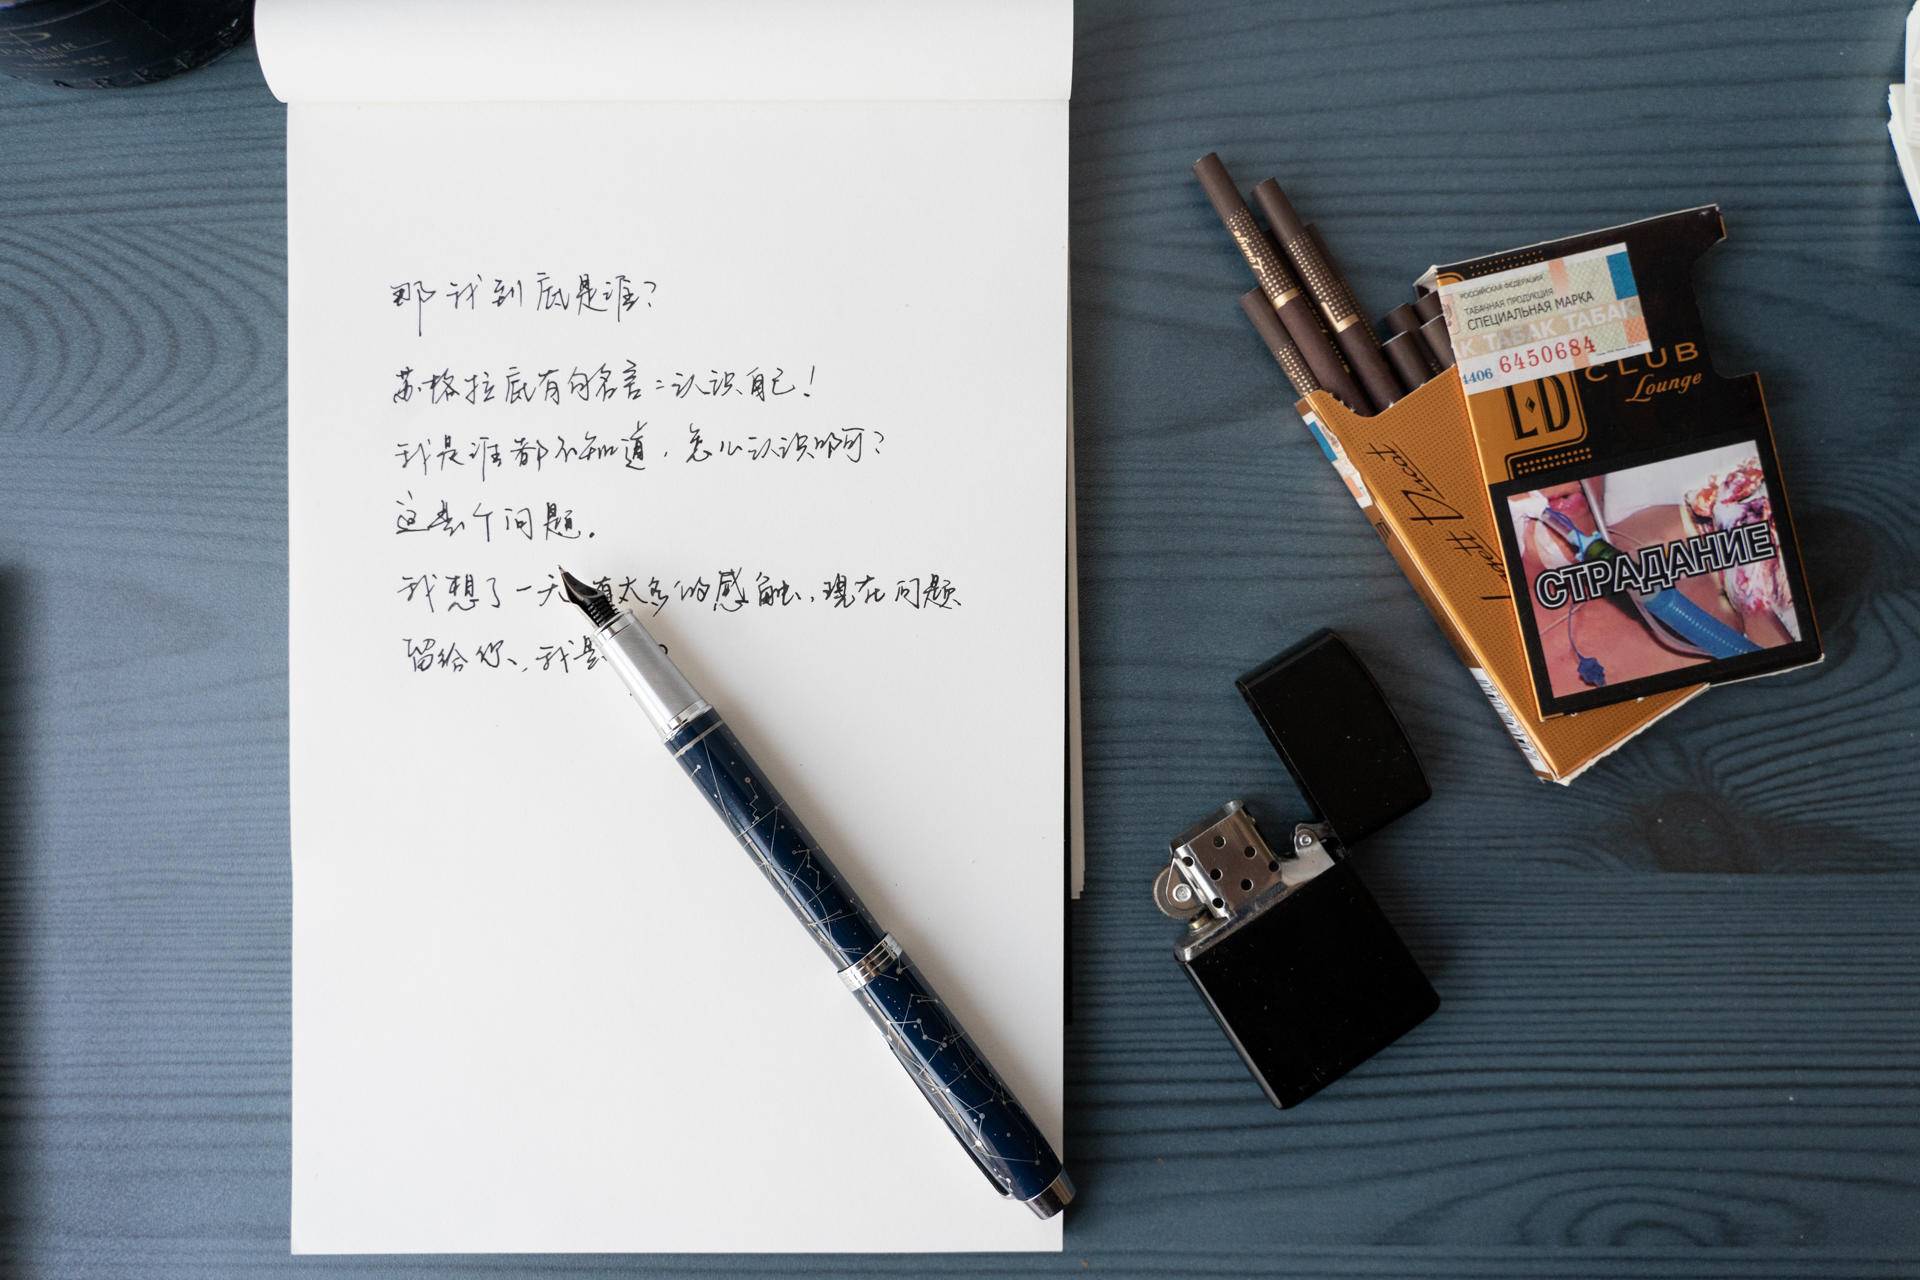 PARKER
那我到底是谁?
苏格拉底有句名言:认识自己!
我是谁都不知道,怎么认识呐?
这是个问题。
我想了一天 有太多的感触,现在问题
留给你、,我是 ?
РОССИЙСКАЯ ФЕДЕРАЦИЯ
ТАБАЧНАЯ ПРОДУКЦИЯ
СПЕЦИАЛЬНАЯ МАРКА
ТАБАК ТАБАК
4406 6450684
LD CLUB
Lounge
Ducat
СТРАДАНИЕ